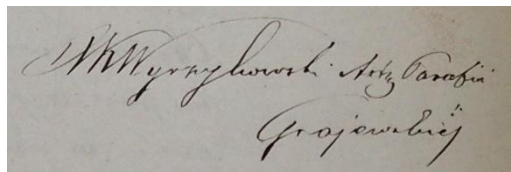 XKWyrzykowski Adm Parafii
Grajewskiéj